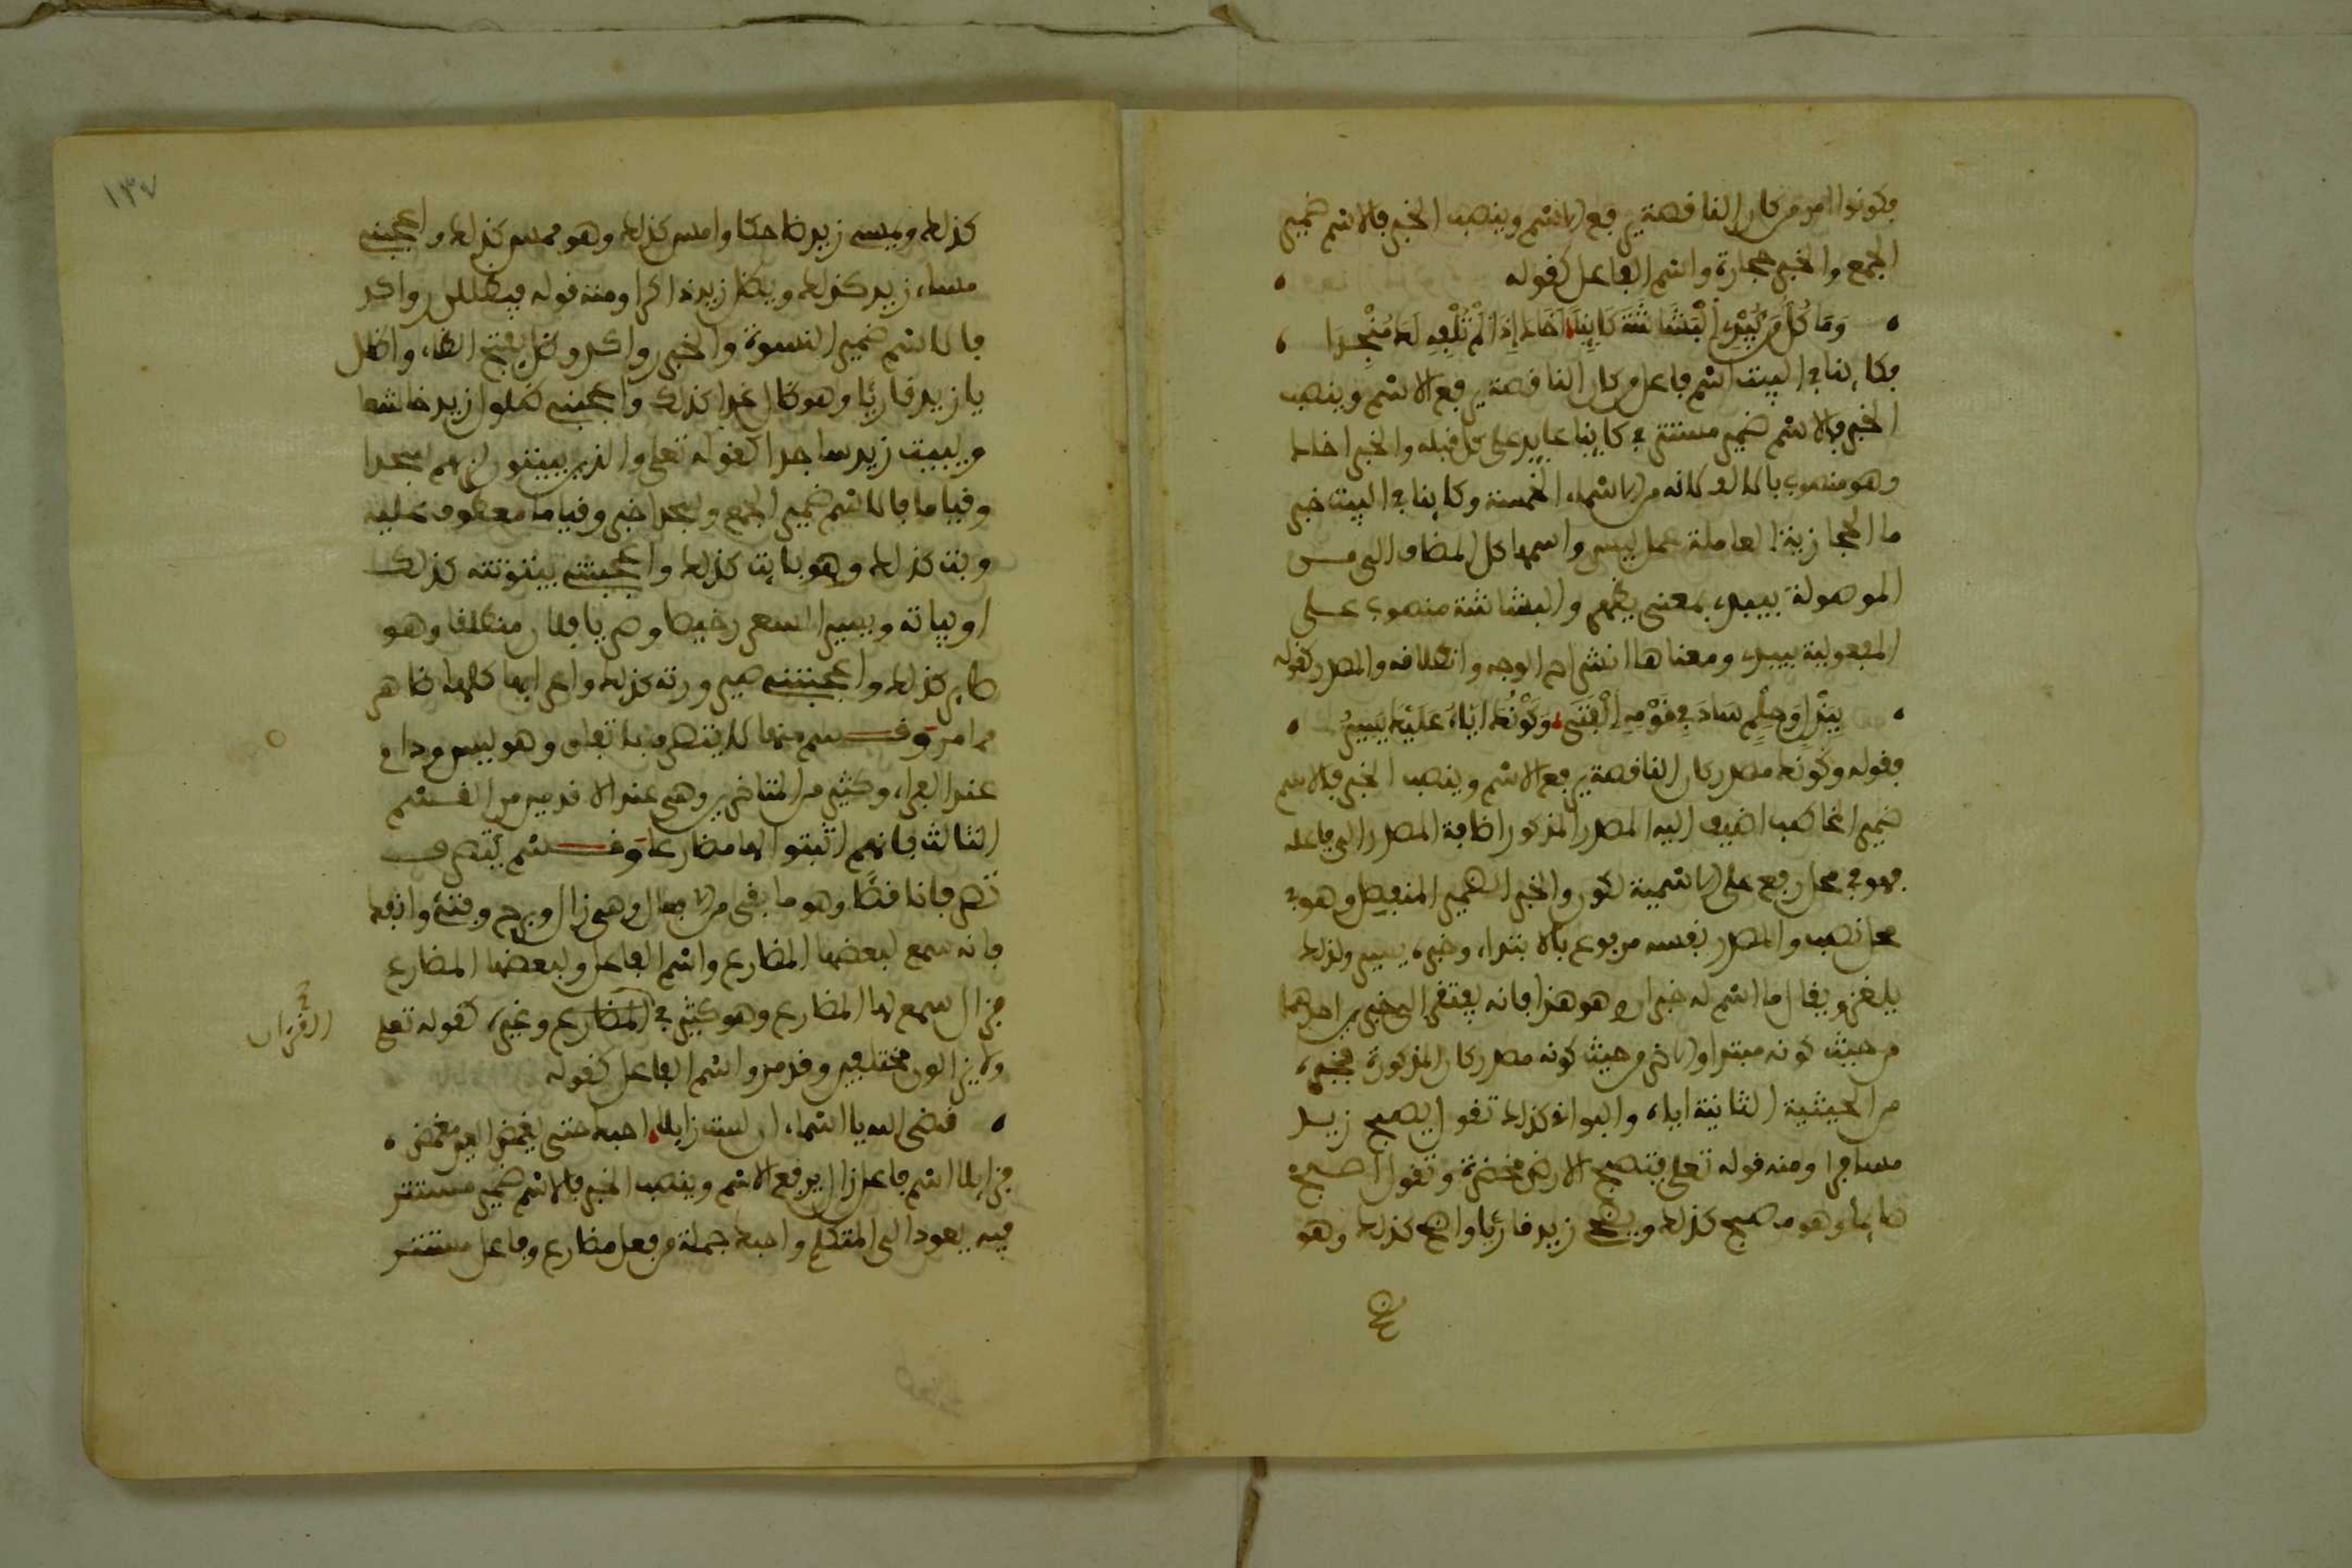 فكونوا امر من كان الناقصة يرفع الاسم وينصب الخبر فالاسم ضمير
الجمع والخبر حجارة واسم الفاعل كقوله
وَمَا كُلُّ مَن يُبْدِي الْبَشَاشَةَ كَايِنًا أَخَاكَ إِذَا لَمْ تُلْفِهِ لَكَ مُنْجِدَا
فكاينا في البيت اسم فاعل من كان الناقصة يرفع الاسم وينصب
الخبر فالاسم ضمير مستتر في كاينا عايد على كل قبله والخبر اخاك
وهو منصوب بالالف لانه من الاسماء الخمسة وكاينا في البيت خبر
ما الحجازية العاملة عمل ليس واسمها كل المضاف الى من
الموصولة يبدي بمعنى يظهر والبشاشة منصوب على
المفعولية بيبدي ومعناها انشراح الوجه وانطلاقه والمصدر كقوله
بِبَذْلٍ وَحِلْمٍ سَادَ فِي قَوْمِهِ الْفَتَى وَكَوْنُكَ إِيَّاهُ عَلَيْكَ يَسِيرُ
فقوله وكونك مصدر كان الناقصة يرفع الاسم وينصب الخبر فالاسم
ضمير المخاطب اضيف اليه المصدر المذكور اضافة المصدر الى فاعله
فهو في محل رفع على الاسمية لكون والخبر الضمير المنفصل وهو في
محل نصب والمصدر نفسه مرفوع بالابتداء وخبره يسير ولذلك
يلغز ويقال ما اسم له خبران وهو هذا فانه يقتضي الى خبرين احدهما
من حيث كونه مبتدا والاخر من حيث كونه مصدر كان المذكورة فخبره
من الحيثية الثانية اياه والبواقي كذلك تقول يصبح زيد
مسافرا ومنه قوله تعلى فتصبح الارض مخضرة وتقول اصبح
صايما وهو مصبح كذلك ويضحى زيد قارئا واضح كذلك وهو
كذلك ويمسي زيد ضاحكا وامس كذلك وهو ممس كذلك واعجبني
مساء زيد كذلك ويظل زيد ذاكرا ومنه قوله فيظللن رواكد
فالاسم ضمير النسوة والخبر رواكد وظل بفتح الظاء واظلل
يا زيد قارئا وهو ظال غدا كذلك واعجبني ظلول زيد خاشعا
ويبيت زيد ساجدا كقوله تعلى والذين يبيتون لربهم سجدا
وقياما فالاسم ضمير الجمع وسجدا خبر وقياما معطوف عليه
وبت كذلك وهو بايت كذلك واعجبتني بيتوتته كذلك
او بياته ويصير السعر رخيصا وصر يا فلان منطلقا وهو
صاير كذلك واعجبتني صيرورته كذلك واعرابها كلها ظاهر
مما مر وقسم منها لا يتصرف باتفاق وهو ليس ودام
عند الفراء وكثير من المتاخرين وهي عند الاقدمين من القسم
الثالث فانهم اثبتوا لها مضارعا وقسم يتصرف
تصرفا ناقصا وهو ما بقي من الافعال وهي زال وبرح وفتئ وانفك
فانه سمع لبعضها المضارع واسم الفاعل ولبعضها المضارع
فزال سمع لها المضارع وهو كثير في القرءان وغيره كقوله تعلى
في القرءان
ولا يزالون مختلفين وقد مر واسم الفاعل كقوله
قضى الله يا اسماء ان لست زايلا احبك حتى يغمض العين مغمض
فزايلا اسم فاعل زال يرفع الاسم وينصب الخبر فالاسم ضمير مستتر
فيه يعود الى المتكلم واحبك جملة من فعل مضارع وفاعل مستتر
١٣٧